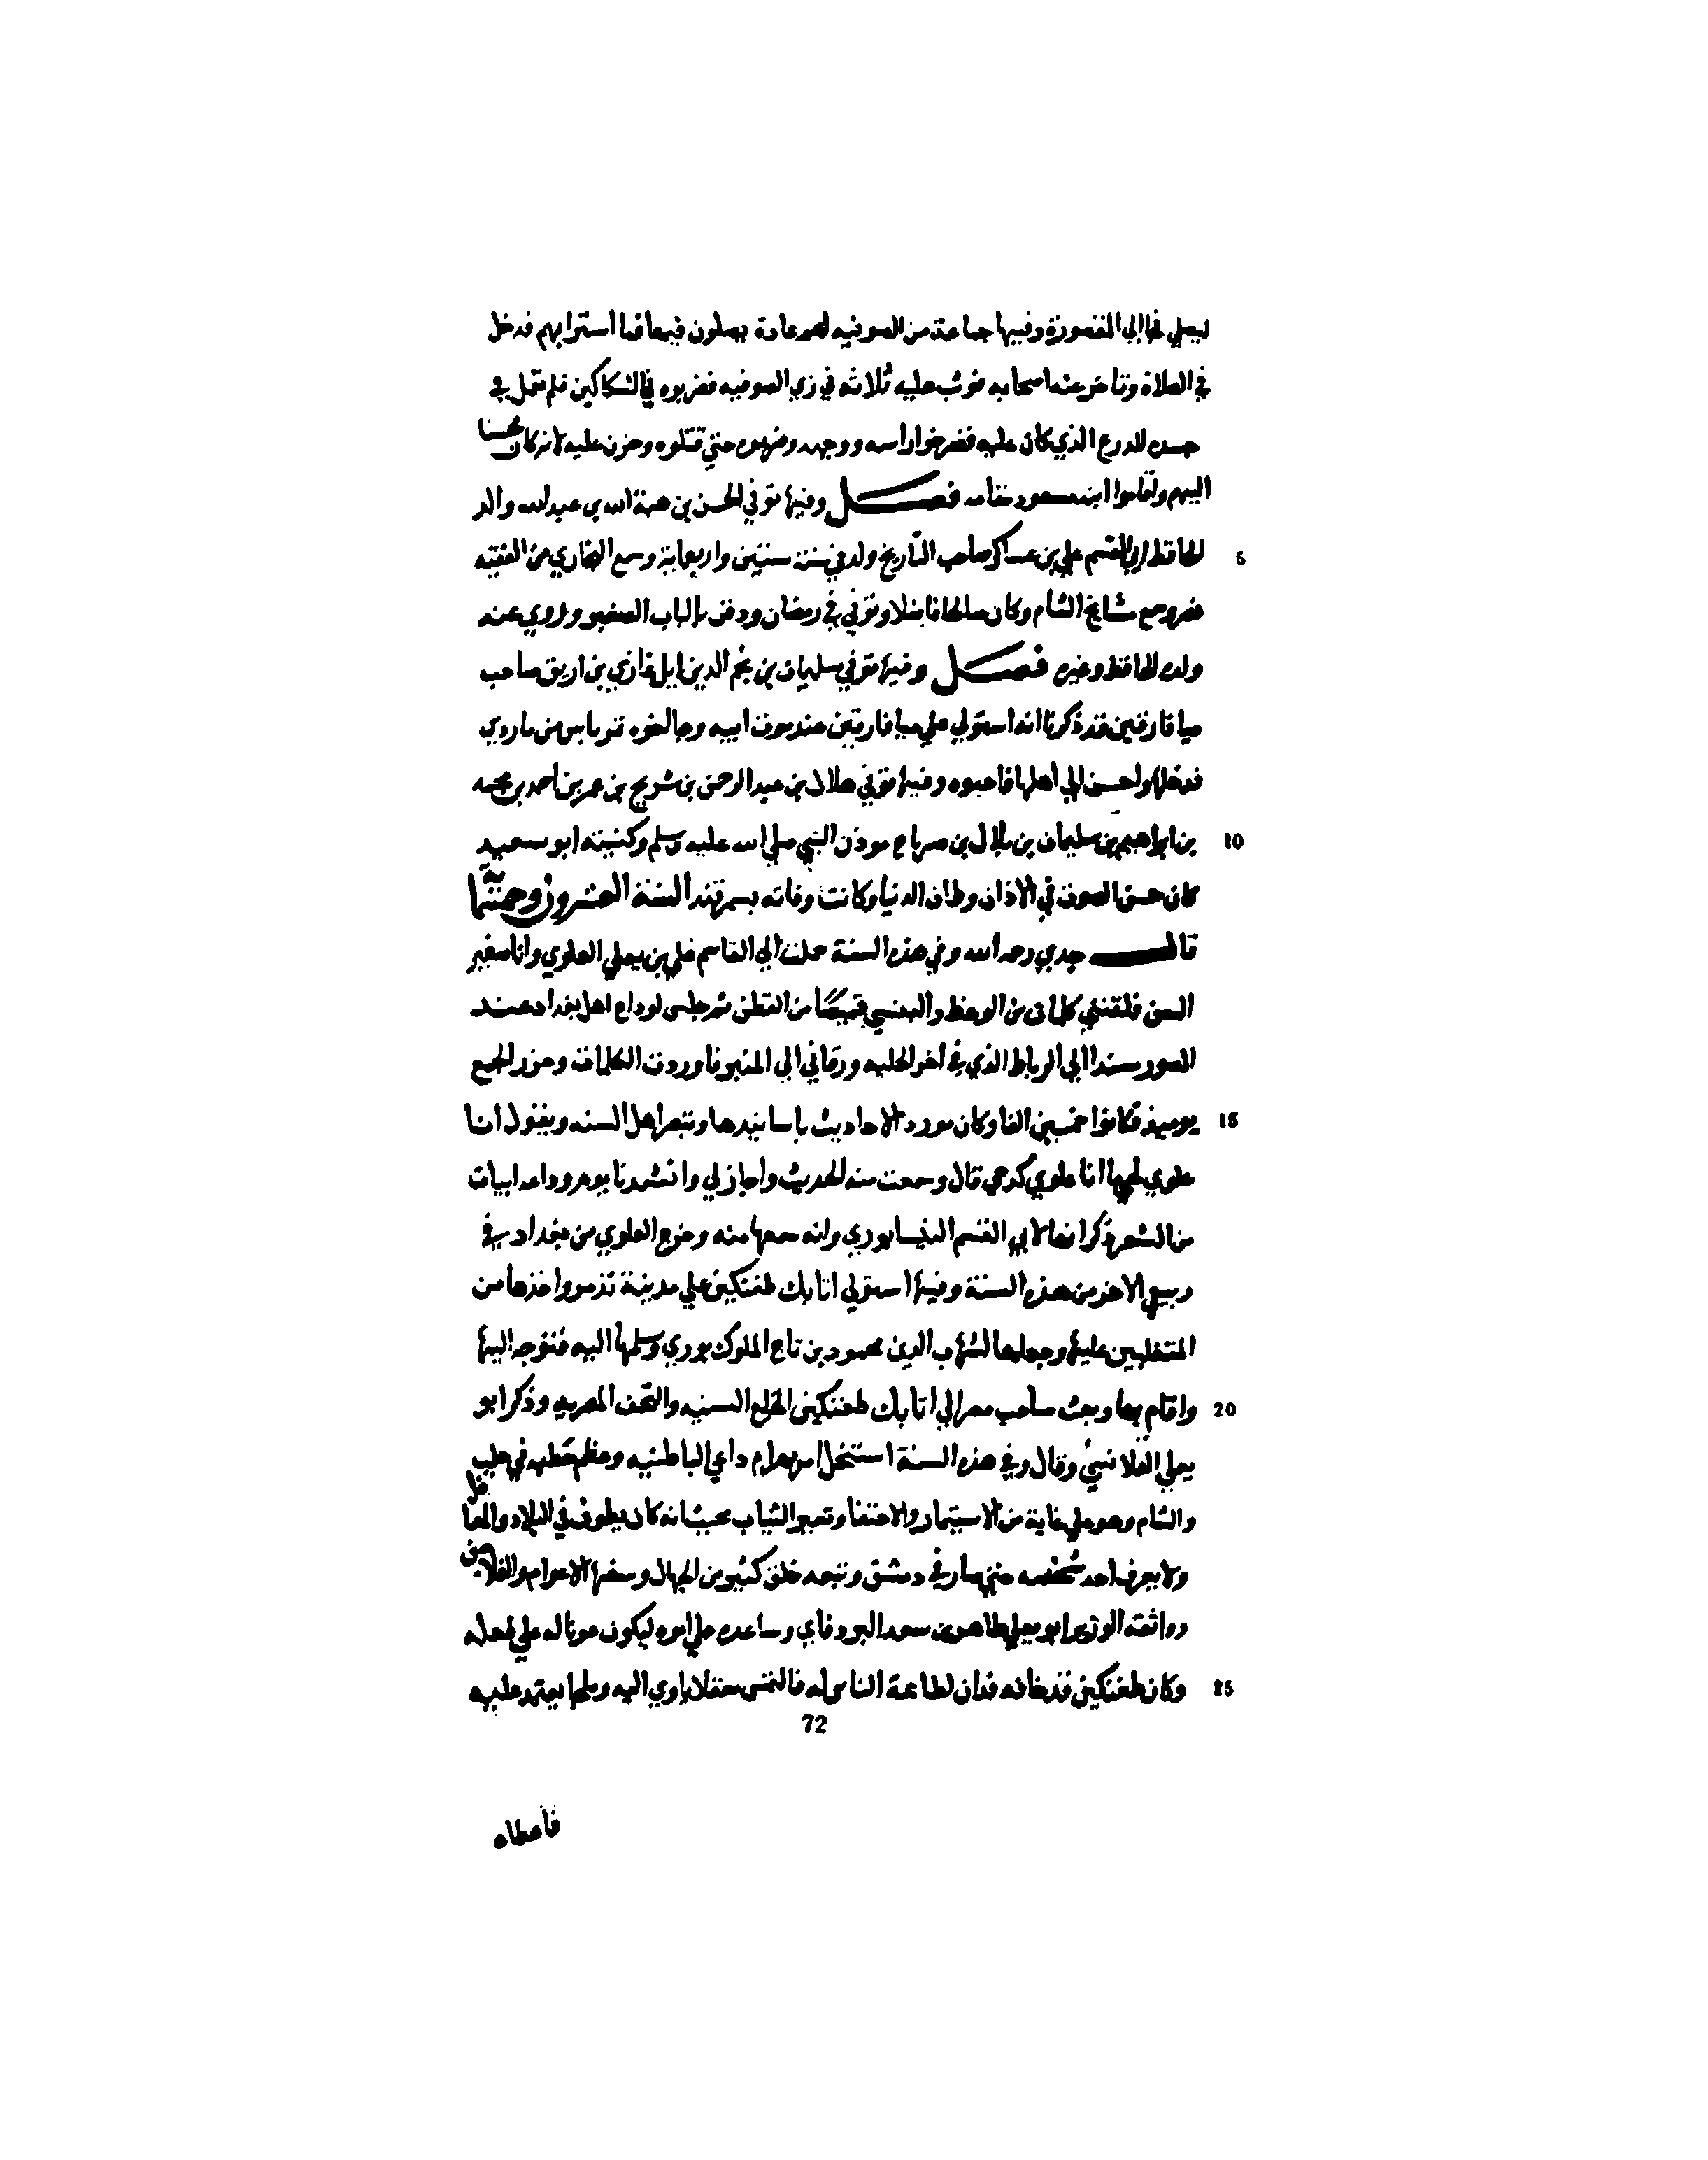 ليصلي فجا الى المقصورة وفيها جماعة من الصوفيه لهم عادة يصلون فيها فما استرابهم فدخل
في الصلاة وتاخر عنه اصحابه فوثب عليه ثلاثه في زي الصوفيه فضربوه في السكاكين فلم تعمل في
جسده للدرع الذي كان عليه فضرخوا راسه ووجهه وضربوه حتي قتلوه وحزن عليه لانه كان محسنا
اليهم واقاموا ابنه مسعود مقامه فصل وفيها توفي الحسن بن هبة الله بن عبد الله والد
الحافظ ابي القسم علي بن عساكر صاحب التاريخ ولد في سنة ستين واربعماية وسمع البخاري من الفقيه
نصر وسمع مشايخ الشام وكان صالحا فاضلا وتوفي في رمضان ودفن بالباب الصغير وروي عنه
ولده الحافظ وغيره فصل وفيها توفي سليمان بن نجم الدين ايل غازي بن ارتق صاحب
ميافارقين قد ذكرنا انه استولي علي ميافارقين عند موت ابيه وجا اخوه تمرتاش من ماردي
فدخلها واحسن الي اهلها فاحبوه وفيها توفي هلال بن عبد الرحمن بن شريح بن عمر بن احمد بن محمد
بن ابراهيم بن سليمان بن بلال بن رباح موذن النبي صلي الله عليه وسلم وكنيته ابو سعيد
كان حسن الصوت في الاذان وطاف الدنيا وكانت وفاته بسمرقند السنة العشرون وخمسماية
قال جدي رحمه الله وفي هذه السنة حملت الي القاسم علي بن يعلي العلوي وانا صغير
السن فلقنني كلمات من الوعظ والبسني قميصا من القطن ثم جلس لوداع اهل بغداد عند
السور مستندا الي الرباط الذي في اخر الحلبه ورقاني الي المنبر فاوردت الكلمات وحزر الجمع
يوميذ فكانوا خمسين الفا وكان يورد الاحاديث باسانيدها وينصر اهل السنه ويقول انا
علوي بلخي ما انا علوي كرخي قال وسمعت منه الحديث واجاز لي وانشدنا يوم وداعه ابيات
من الشعر ذكر انها لابي القسم النيسابوري وانه سمعها منه وخرج العلوي من بغداد في
ربيع الاخر من هذه السنة وفيها استولي اتابك طغتكين علي مدينة تدمر واخذها من
المتغلبين عليها وجعلها لشهاب الدين محمود بن تاج الملوك بوري وسلمها اليه فتوجه اليها
واقام بها وبعث صاحب مصر الي اتابك طغتكين الخلع السنيه والتحف المصريه وذكر ابو
يعلي القلانسي وقال وفي هذه السنة استفحل امر بهرام داعي الباطنيه وعظم خطبه في حلب
والشام وهو علي غاية من الاستتار والاختفا وتغيير الثياب بحيث انه كان يطوف في البلاد والمعاقل
ولا يعرف احد شخصه حتي صار في دمشق وتبعه خلق كثير من الجهال وسفها الاعوام والفلاحين
ووافقه الوزير ابو يعلي طاهر بن سعد المزدقاني وساعده علي امره ليكون عونا له علي فعله
وكان طغتكين قد خافه فدان لطاعة الناس له فالتمس معقلا ياوي اليه وملجا يعتمد عليه
72
فاعطاه